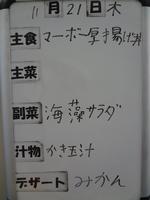 11月21日木
主食 マーボー厚揚げ丼
主菜
副菜 海藻サラダ
汁物 かき玉汁
デザート みかん